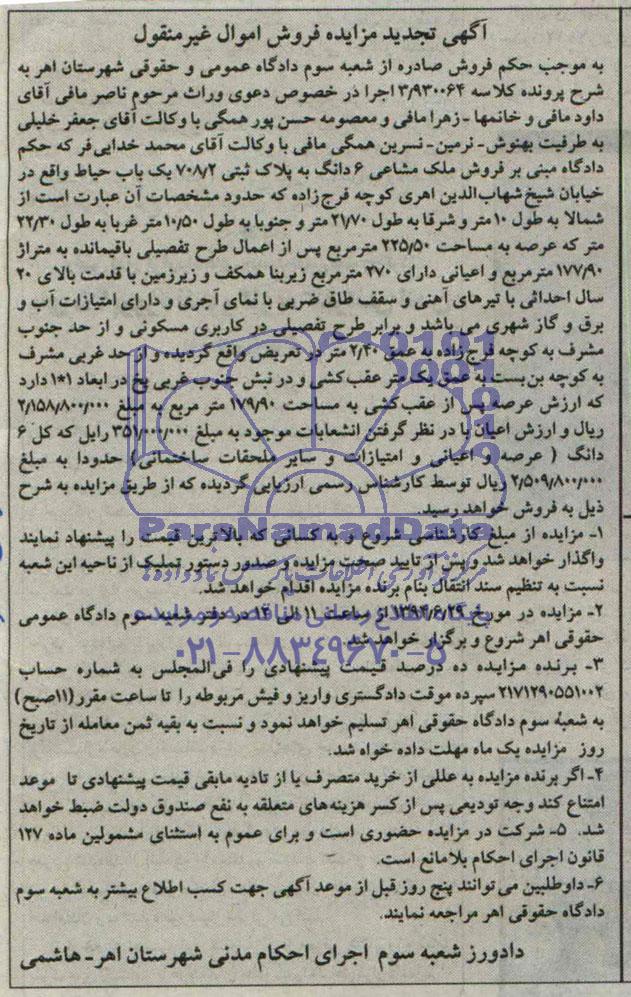 آگهی تجدید مزایده فروش اموال غیرمنقول
به موجب حکم فروش صادره از شعبه سوم دادگاه عمومی و حقوقی شهرستان اهر به
شرح پرونده کلاسه ۳/۹۳۰۰۶۴ اجرا در خصوص دعوی وراث مرحوم ناصر مافی آقای
داود مافی و خانمها - زهرا مافی و معصومه حسن پور همگی با وکالت آقای جعفر خلیلی
به طرفیت بهنوش - نرمین - نسرین همگی مافی با وکالت آقای محمد خدایی فر که حکم
دادگاه مبنی بر فروش ملک مشاعی ۶ دانگ به پلاک ثبتی ۷۰۸/۲ یک باب حیاط واقع در
خیابان شیخ شهاب الدین اهری کوچه فرج زاده که حدود مشخصات آن عبارت است از
شمالا به طول ۱۰ متر و شرقا به طول ۲۱/۷۰ متر و جنوبا به طول ۱۰/۵۰ متر غربا به طول ۲۲/۳۰
متر که عرصه به مساحت ۲۲۵/۵۰ مترمربع پس از اعمال طرح تفصیلی باقیمانده به متراژ
۱۷۷/۹۰ مترمربع و اعیانی دارای ۲۷۰ مترمربع زیربنا همکف و زیرزمین با قدمت بالای ۲۰
سال احداثی با تیرهای آهنی و سقف طاق ضربی با نمای آجری و دارای امتیازات آب و
برق و گاز شهری می باشد و برابر طرح تفصیلی در کاربری مسکونی و از حد جنوب
مشرف به کوچه فرج زاده به عمق ۲/۴۰ متر در تعریض واقع گردیده و از حد غربی مشرف
به کوچه بن بست به عمق یک متر عقب کشی و در نبش جنوب غربی پخ در ابعاد ۱*۱ دارد
که ارزش عرصه پس از عقب کشی به مساحت ۱۷۹/۹۰ متر مربع به مبلغ ۲/۱۵۸/۸۰۰/۰۰۰
ریال و ارزش اعیان با در نظر گرفتن انشعابات موجود به مبلغ ۳۵۱/۰۰۰/۰۰۰ رایل که کل ۶
دانگ ( عرصه و اعیانی و امتیازات و سایر ملحقات ساختمانی) حدودا به مبلغ
۲/۵۰۹/۸۰۰/۰۰۰ ریال توسط کارشناس رسمی ارزیابی گردیده که از طریق مزایده به شرح
ذیل به فروش خواهد رسید.
ParsNamadData
۱- مزایده از مبلغ کارشناسی شروع و به کسانی که بالاترین قیمت را پیشنهاد نمایند
واگذار خواهد شد و پس از تایید صحت مزایده و صدور دستور تملیک از ناحیه این شعبه
نسبت به تنظیم سند انتقال بنام برنده مزایده اقدام خواهد شد.
۲- مزایده در مورخ ۱۳۹۴/۶/۲۹ از ساعت ۱۱ الی ۱۲ در دفتر شعبه سوم دادگاه عمومی
حقوقی اهر شروع و برگزار خواهد شد.
۰۲۱-۸۸۳۴۹۶۷۰-۵
۳- برنده مزایده ده درصد قیمت پیشنهادی را فی المجلس به شماره حساب
۲۱۷۱۲۹۰۵۵۱۰۰۲ سپرده موقت دادگستری واریز و فیش مربوطه را تا ساعت مقرر (۱۱صبح)
به شعبه سوم دادگاه حقوقی اهر تسلیم خواهد نمود و نسبت به بقیه ثمن معامله از تاریخ
روز مزایده یک ماه مهلت داده خواه شد.
۴- اگر برنده مزایده به عللی از خرید متصرف یا از تادیه مابقی قیمت پیشنهادی تا موعد
امتناع کند وجه تودیعی پس از کسر هزینه های متعلقه به نفع صندوق دولت ضبط خواهد
شد. ۵- شرکت در مزایده حضوری است و برای عموم به استثنای مشمولین ماده ۱۲۷
قانون اجرای احکام بلامانع است.
۶- داوطلبین می توانند پنج روز قبل از موعد آگهی جهت کسب اطلاع بیشتر به شعبه سوم
دادگاه حقوقی اهر مراجعه نمایند.
دادورز شعبه سوم اجرای احکام مدنی شهرستان اهر - هاشمی